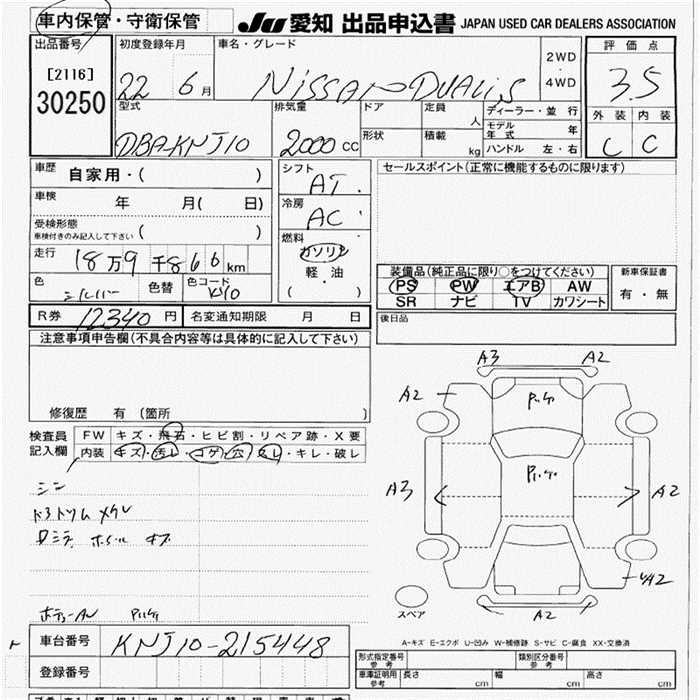 車内保管・守衛保管
JU 愛知 出品申込書 JAPAN USED CAR DEALERS ASSOCIATION
出品番号
[2116]
30250
初度登録年月
22 6 月
車名・グレード
NISSAN DUALIS
2WD
・
4WD
評価点
3.5
外装 内装
C C
型式
DBA-KNJ10
排気量
2000 CC
ドア
形状
定員
人
積載
kg
ディーラー・並行
モデル年式 年
ハンドル 左・右
車歴 自家用・( )
車検 年 月( 日)
受検形態
車検付きのみ記入して下さい ( )
走行 18万9千866km
色 シルバー 色替 色コード K10
シフト
AT
冷房
AC
燃料
ガソリン
軽・油
( )
セールスポイント(正常に機能するものに限ります)
装備品(純正品に限り○をつけてください)
PS PW エアB AW
SR ナビ TV カワシート
新車保証書
有・無
後日品
R券 12340 円 名変通知期限 月 日
注意事項申告欄(不具合内容等は具体的に記入して下さい)
修復歴 有 (箇所 )
検査員記入欄
FW キズ・飛石・ヒビ割・リペア跡・X要
内装 キズ・汚レ・コゲ・穴・スレ・キレ・破レ
A3 A2
A2
A3 A2
A2
A2
スペア
A-キズ E-エクボ U-凹み W-補修跡 S-サビ C-腐食 XX-交換済
車台番号 KNJ10-215448
登録番号
形式指定番号 参考
類別区分番号 参考
車庫証明用 参考 長さ cm 幅 cm 高さ cm